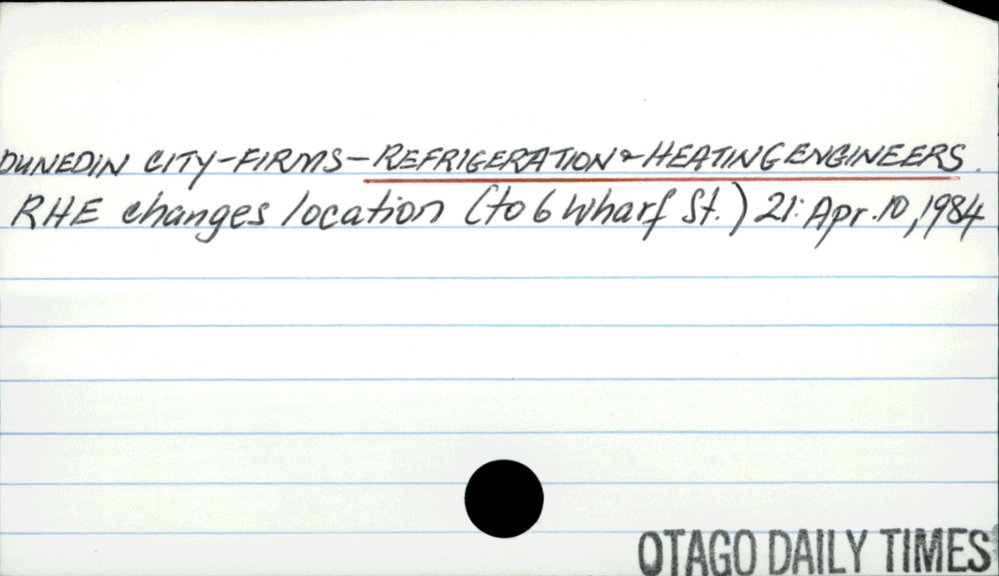 DUNEDIN CITY-FIRMS-REFRIGERATION & HEATING ENGINEERS.
RHE changes location (to 6 Wharf St.) 21: Apr. 10, 1984
OTAGO DAILY TIMES